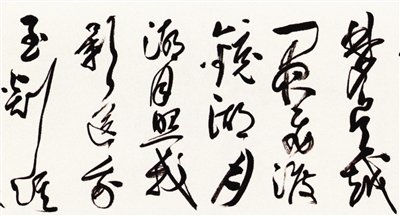 梦吴越
一夜飛渡
鏡湖月
湖月照我
影送我
至剡溪